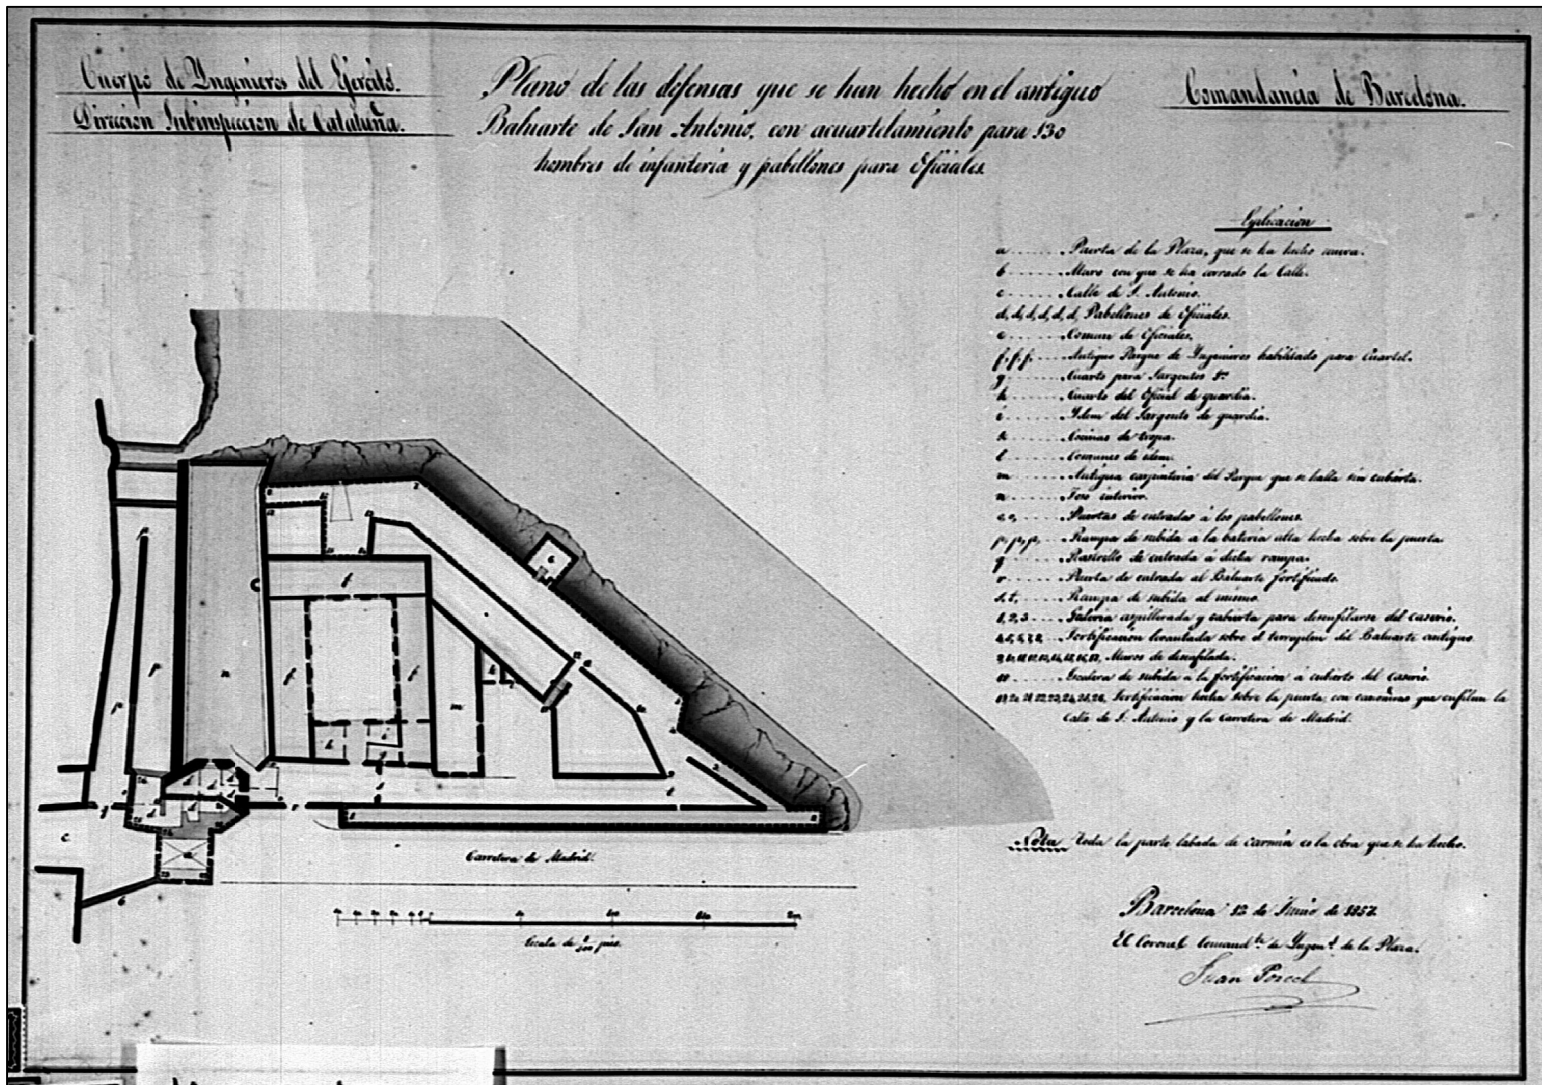 Cuerpo de Yngenieros del Ejército.
Direccion Subinspeccion de Cataluña.
Plano de las defensas que se han hecho en el antiguo
Baluarte de San Antonio, con acuartelamiento para 130
hombres de infanteria y pabellones para Oficiales.
Comandancia de Barcelona.
Esplicacion
a Puerta de la Plaza, que se ha hecho nueva.
b Muro con que se ha cerrado la Calle.
c Calle de S. Antonio.
d, d, d, d, d, d, Pabellones de Oficiales.
e Comun de Oficiales.
f, f, f, Antiguo Parque de Yngenieros habilitado para Cuartel.
g Cuarto para Sargentos
h Cuarto del Oficial de guardia.
i Ydem del Sargento de guardia.
k Cocinas de tropa.
l Comunes de idem.
m Antigua carpinteria del Parque que se halla sin cubierta.
n Foso interior.
o, o, Puertas de entradas á los pabellones.
p, p, p, Rampa de subida a la bateria alta hecha sobre la puerta
q Rastrillo de entrada á dicha rampa.
r Puerta de entrada al Baluarte fortificado.
s, t, Rampa de subida al mismo.
1, 2, 3 Galeria aspillerada y cubierta para desenfilarse del caserio.
Fortificacion levantada sobre el terraplen del Baluarte antiguo
Muros de desenfilada.
Escalera de subida á la fortificacion á cubierto del caserio.
Fortificacion hecha sobre la puerta con cañoneras que enfilan la
Calle de S. Antonio y la carretera de Madrid.
Carretera de Madrid.
Escala de pies.
Nota Toda la parte labada de carmin es la obra que se ha hecho.
Barcelona 12 de Junio de 1857
El Coronel Comand.te de Yngen.s de la Plaza.
Juan Porcel